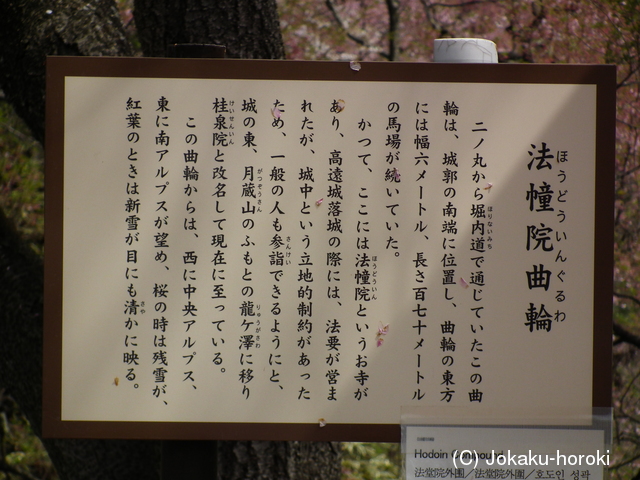 法幢院曲輪
ほうどういんぐるわ
二ノ丸から堀内道で通じていたこの曲
ほりないみち
輪は、城郭の南端に位置し、曲輪の東方
には幅六メートル、長さ百七十メートル
の馬場が続いていた。
かつて、ここには法幢院というお寺が
ほうどういん
あり、高遠城落城の際には、法要が営ま
れたが、城中という立地的制約があった
ため、一般の人も参詣できるようにと、
さんけい
城の東、月蔵山のふもとの龍ケ澤に移り
がつぞうさん
りゅうがさわ
桂泉院と改名して現在に至っている。
けいせんいん
この曲輪からは、西に中央アルプス、
東に南アルプスが望め、桜の時は残雪が、
紅葉のときは新雪が目にも清かに映る。
さや
Hodoin Compound
法堂院外围／法堂院外圍／호도인 성곽
(C) Jokaku-horoki